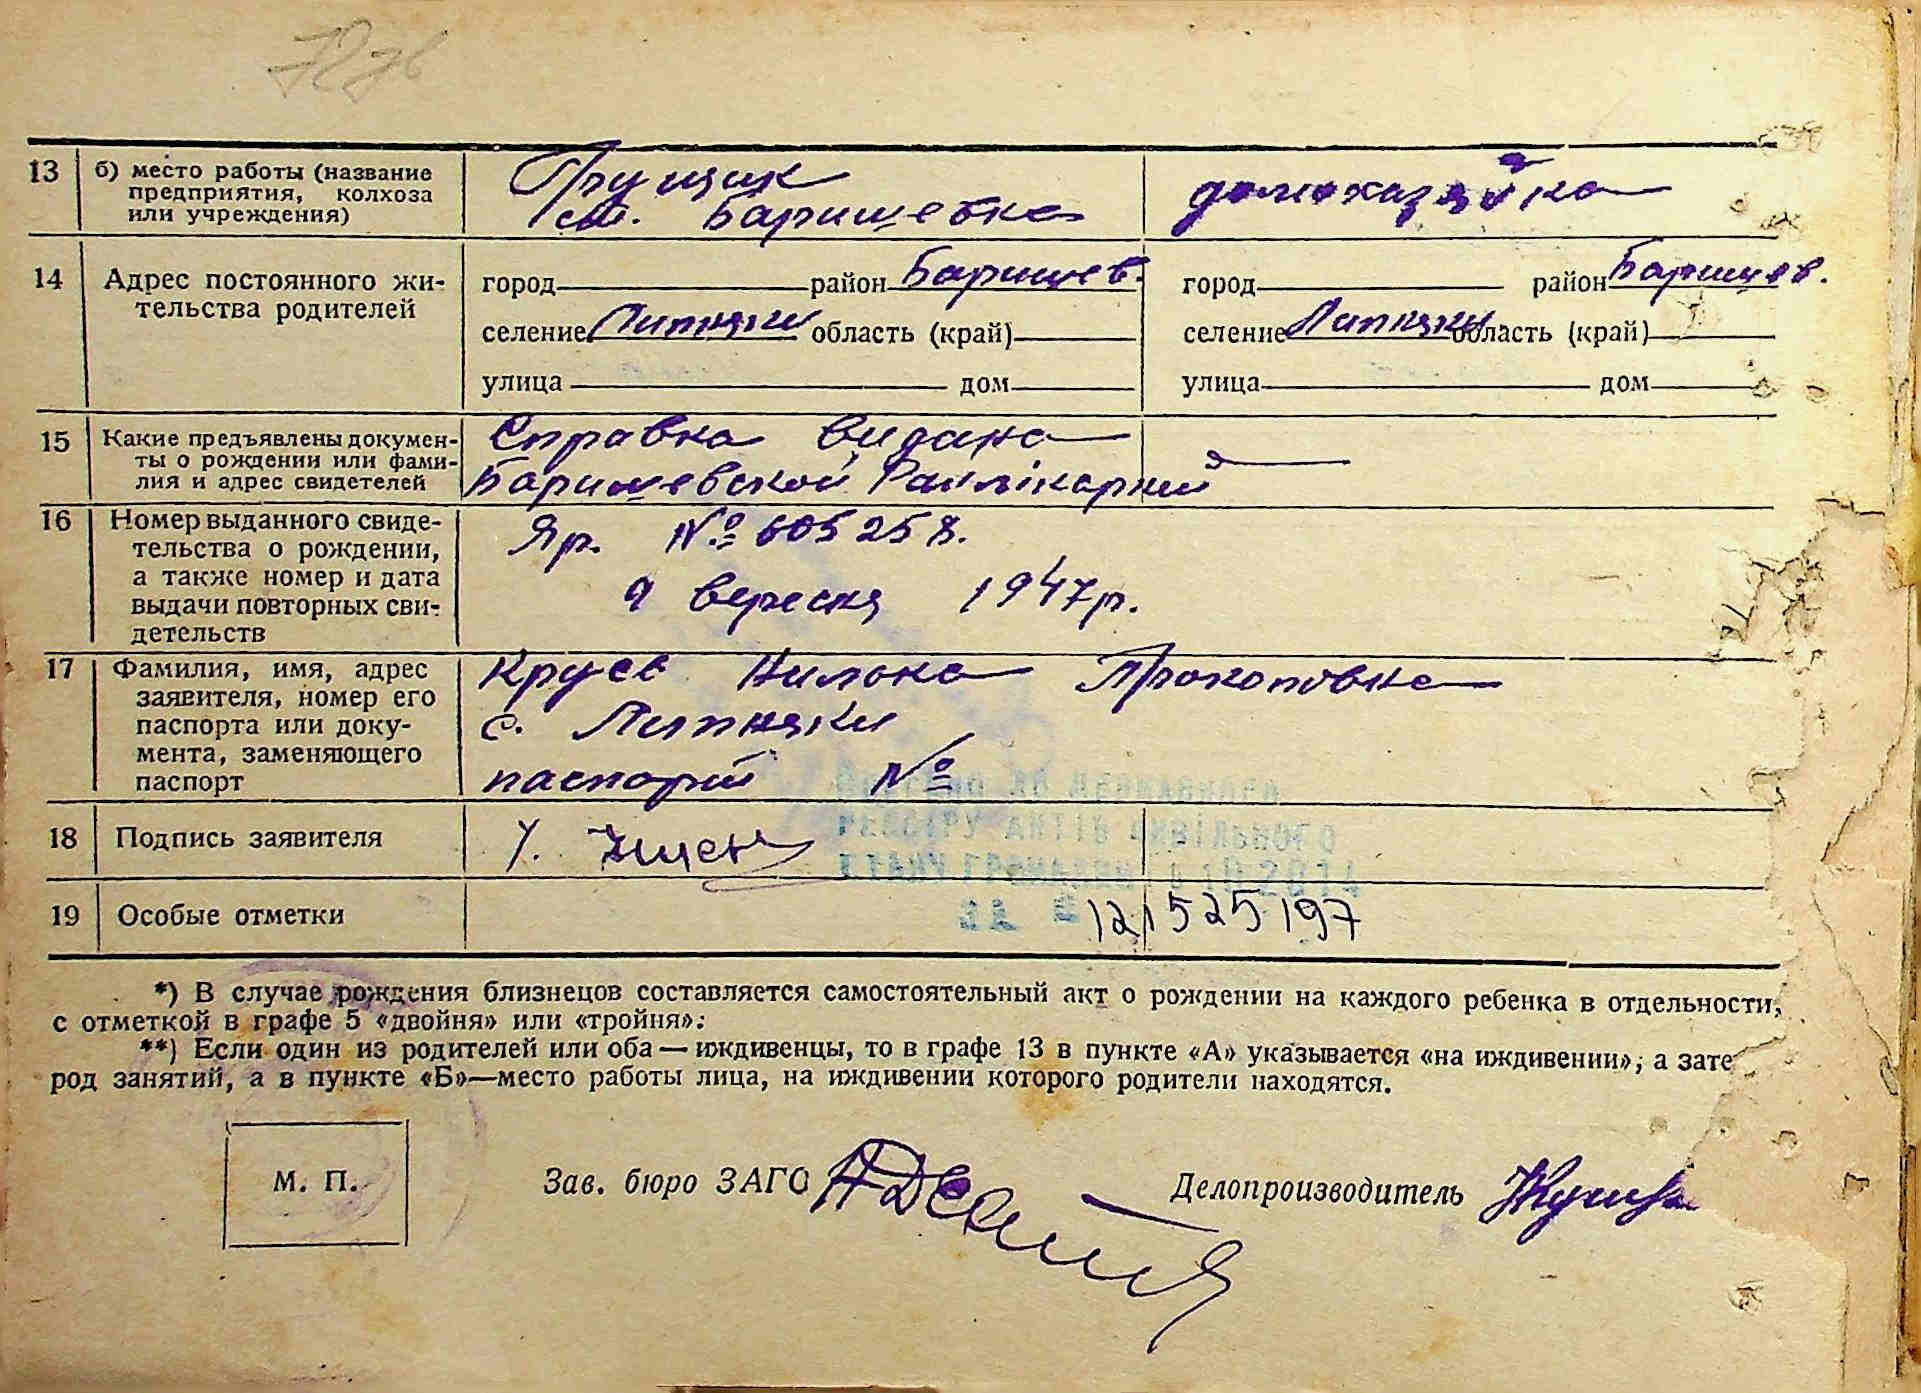 13 б) место работы (название предприятия, колхоза или учреждения)
Грущик
ст. Баришевка
домохазяйка
14 Адрес постоянного жительства родителей
город район Баришев. город район Баришев.
селение Липняки область (край) селение Липняки область (край)
улица дом улица дом
15 Какие предъявлены документы о рождении или фамилия и адрес свидетелей
Справка видана
Баришевской Райлікарней
16 Номер выданного свидетельства о рождении, а также номер и дата выдачи повторных свидетельств
Яр. № 605258.
9 вересня 1947р.
17 Фамилия, имя, адрес заявителя, номер его паспорта или документа, заменяющего паспорт
Прокоповна
с. Липняки
паспорт №
18 Подпись заявителя
19 Особые отметки
РЕЄСТРУ АКТІВ ЦИВІЛЬНОГО
СТАНУ ГРОМАДЯН
ЗА № 121525197
*) В случае рождения близнецов составляется самостоятельный акт о рождении на каждого ребенка в отдельности,
с отметкой в графе 5 «двойня» или «тройня».
**) Если один из родителей или оба — иждивенцы, то в графе 13 в пункте «А» указывается «на иждивении», а зате
род занятий, а в пункте «Б»—место работы лица, на иждивении которого родители находятся.
М. П.
Зав. бюро ЗАГС
Делопроизводитель